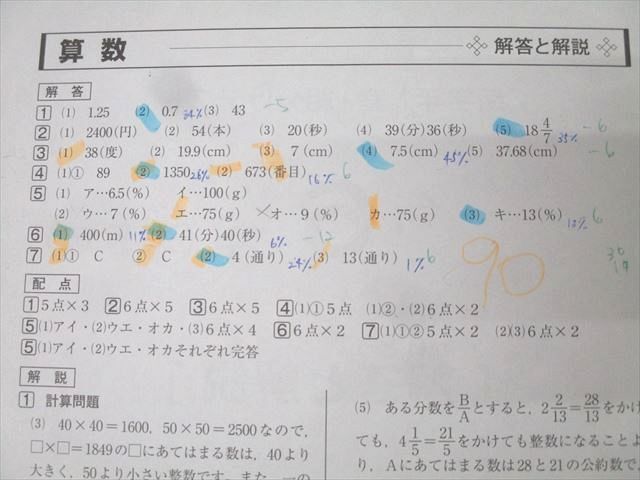 算数 解答と解説
解答
1 (1) 1.25 (2) 0.7 34% (3) 43 -5
2 (1) 2400(円) (2) 54(本) (3) 20(秒) (4) 39(分)36(秒) (5) 18 4/7 35% -6
3 (1) 38(度) (2) 19.9(cm) (3) 7(cm) (4) 7.5(cm) 45% (5) 37.68(cm) -6
4 (1)① 89 ② 1350 26% (2) 673(番目) 16% 6
5 (1) ア…6.5(%) イ…100(g)
(2) ウ…7(%) エ…75(g) ×オ…9(%) カ…75(g) (3) キ…13(%) 12% 6
6 (1) 400(m) 11% (2) 41(分)40(秒) 6% -12
7 (1)① C ② C (2) 4(通り) 24% (3) 13(通り) 1% 6
90
配点
1 5点×3 2 6点×5 3 6点×5 4 (1)①5点 (1)②・(2)6点×2
5 (1)アイ・(2)ウエ・オカ・(3)6点×4 6 6点×2 7 (1)①②5点×2 (2)(3)6点×2
5 (1)アイ・(2)ウエ・オカそれぞれ完答
解説
1 計算問題
(3) 40×40=1600，50×50=2500なので，
□×□=1849の□にあてはまる数は，40より
大きく，50より小さい整数です。また，一の
(5) ある分数をB/Aとすると，2 2/13=28/13をかけ
ても，4 1/5=21/5をかけても整数になることよ
り，Aにあてはまる数は28と21の公約数で，